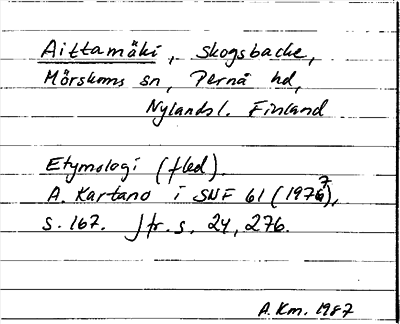 Aittamäki, skogsbacke,
Mörskoms sn, Pernå hd,
Nylandsl. Finland
Etymologi (fled).
A. Kartano i SNF 61 (1977),
s. 167. Jfr. s. 24, 276.
A.Km. 1987